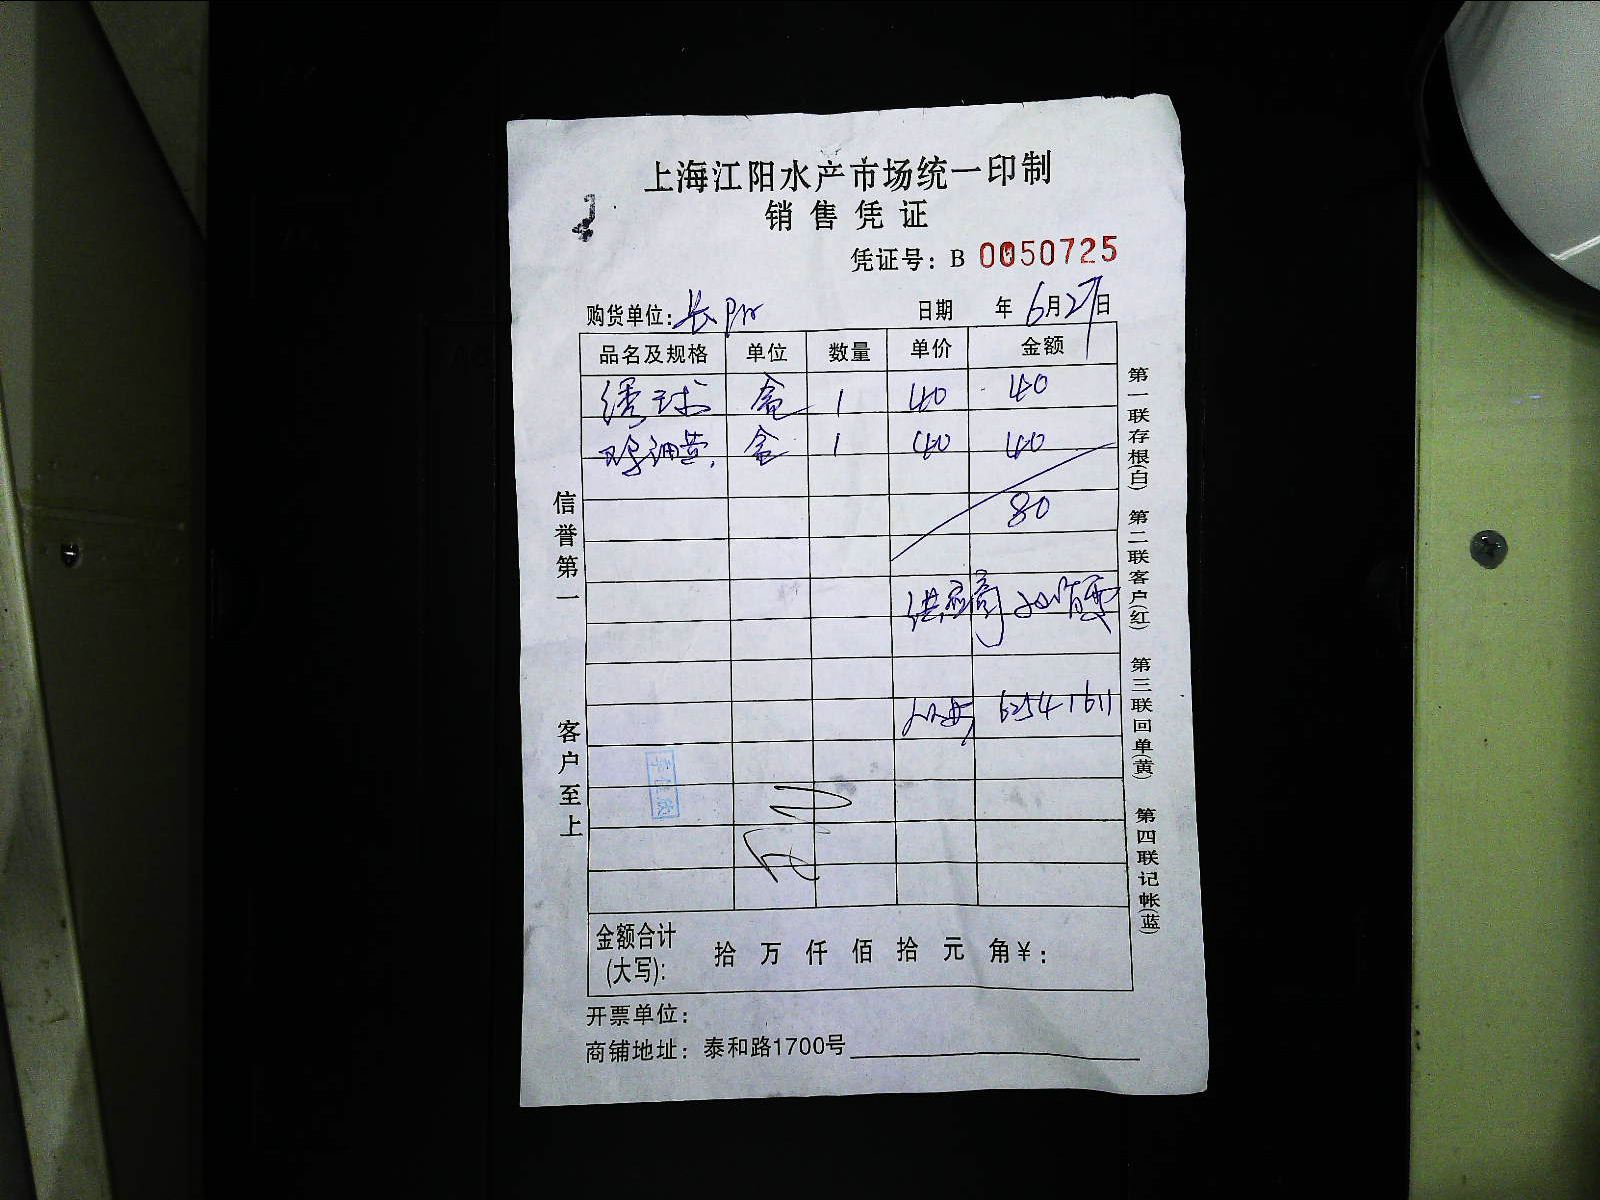 上海江阳水产市场统一印制
销售凭证
凭证号：B 0050725
购货单位：长阳
日期 年 6月27日
品名及规格 单位 数量 单价 金额
绣球 盒 1 40 40
盒 1 40 40
80
供应商
62541611
金额合计(大写)： 拾 万 仟 佰 拾 元 角 ¥：
开票单位：
商铺地址：泰和路1700号
信誉第一
客户至上
第一联存根(白) 第二联客户(红) 第三联回单(黄) 第四联记帐(蓝)